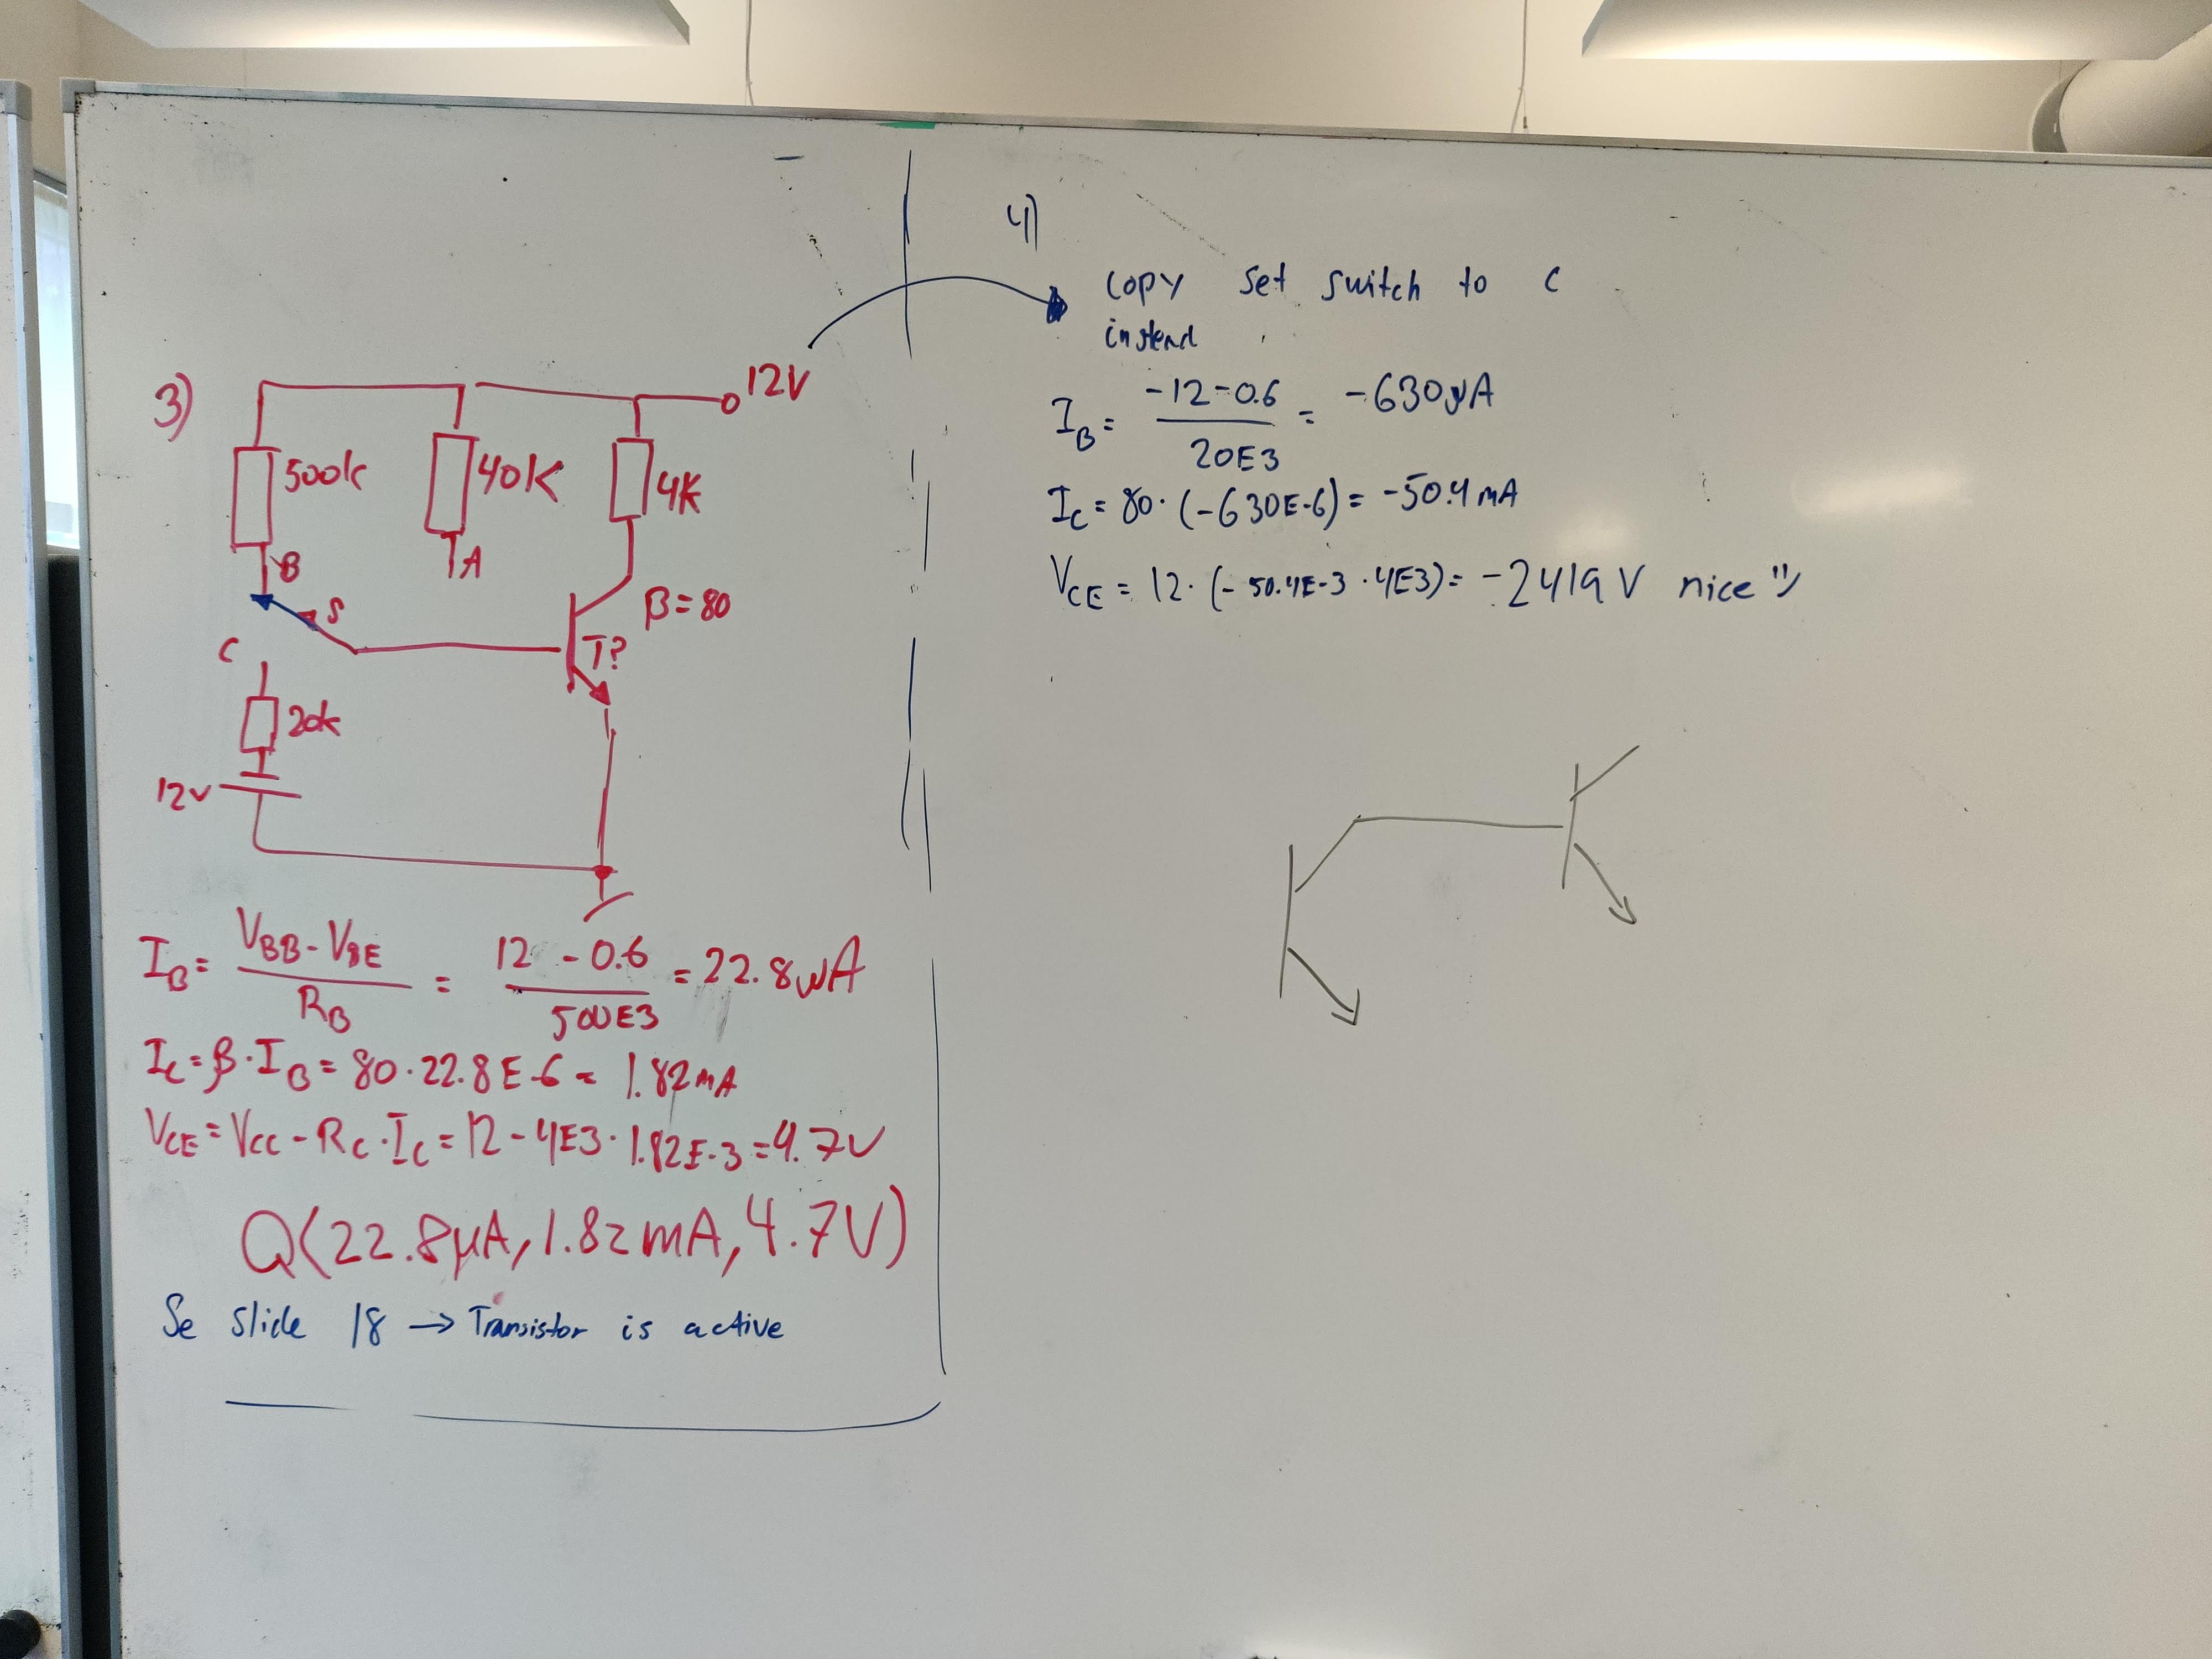 3)
12V
500k
40K
4K
B
A
S
β=80
C
T?
20k
12v
I_B = (V_BB - V_BE) / R_B = (12 - 0.6) / 500E3 = 22.8µA
I_C = β·I_B = 80·22.8E-6 = 1.82mA
V_CE = V_CC - R_C·I_C = 12 - 4E3·1.82E-3 = 4.7V
Q(22.8µA, 1.82mA, 4.7V)
Se slide 18 → Transistor is active
4)
copy set switch to C
instead
I_B = (-12-0.6) / 20E3 = -630µA
I_C = 80·(-630E-6) = -50.4mA
V_CE = 12·(-50.4E-3·4E3) = -2419V nice